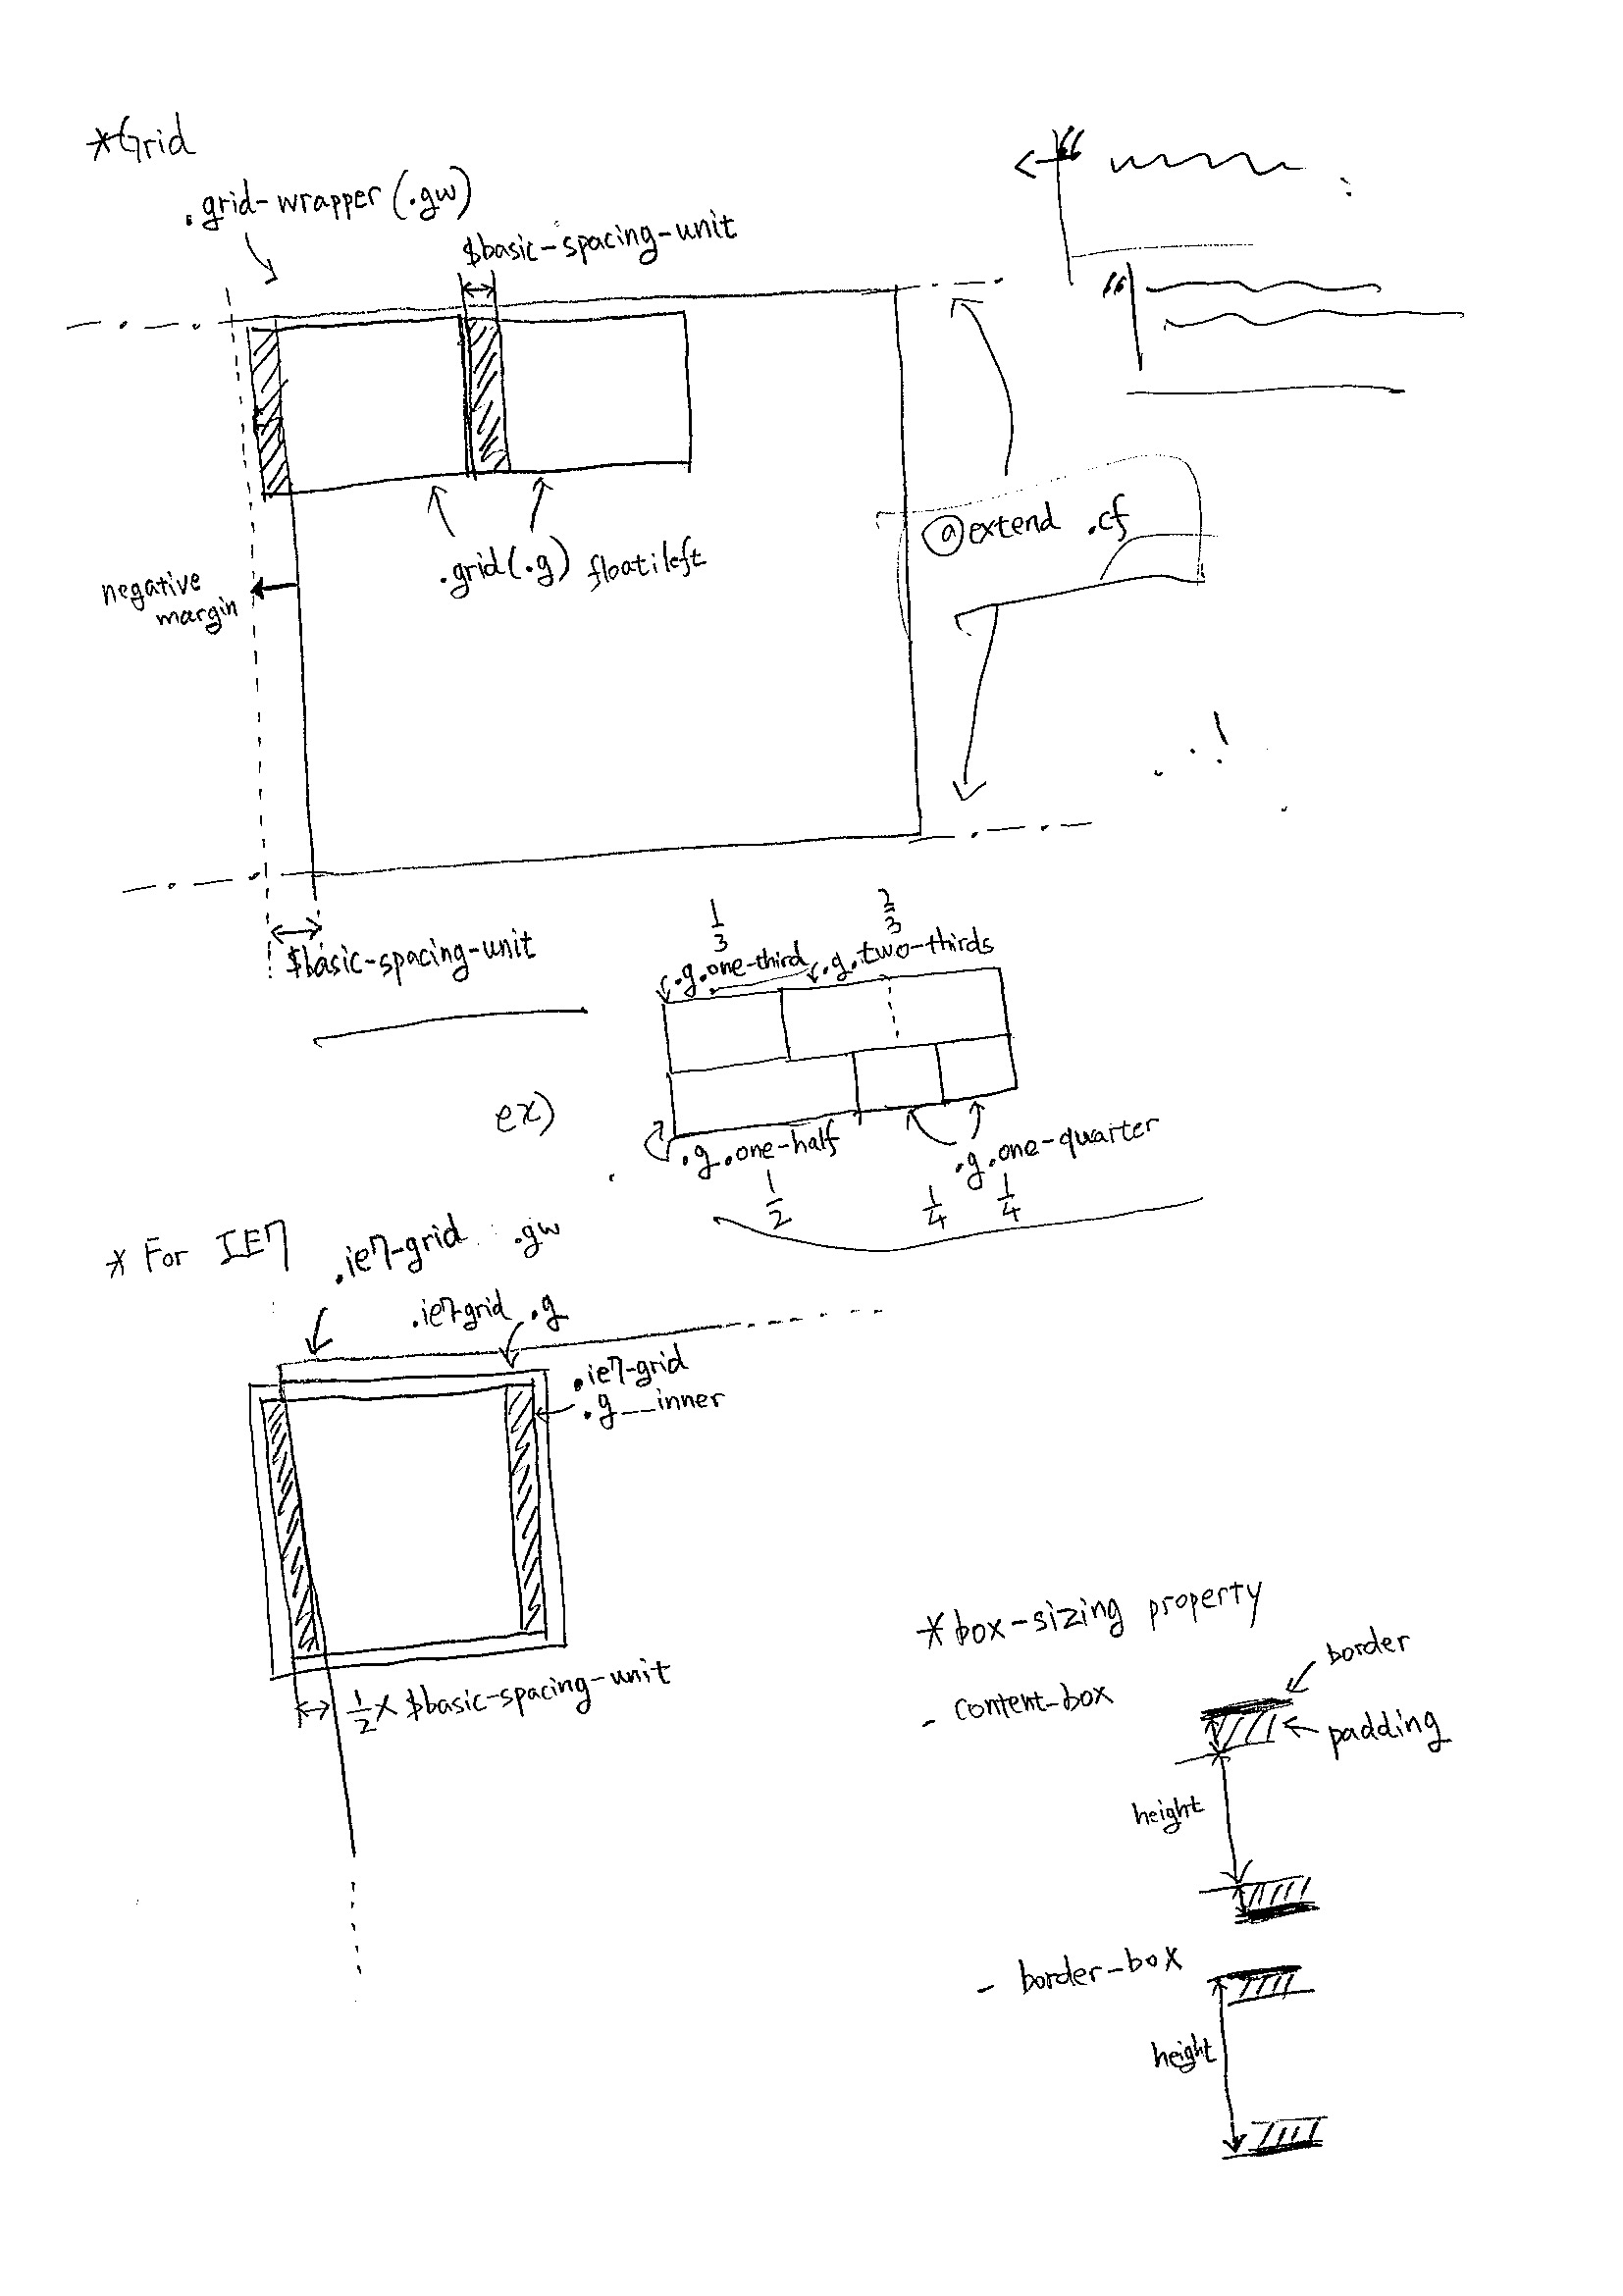 *Grid
.grid-wrapper(.gw)
$basic-spacing-unit
“
“
@extend .cf
.grid(.g) float:left
negative
margin
$basic-spacing-unit
1/3
2/3
.g.one-third
.g.two-thirds
ex)
.g.one-half
.g.one-quarter
1/2
1/4
1/4
* For IE7
.ie7-grid .gw
.ie7-grid .g
.ie7-grid
.g__inner
1/2 x $basic-spacing-unit
*box-sizing property
- content-box
border
padding
height
- border-box
height